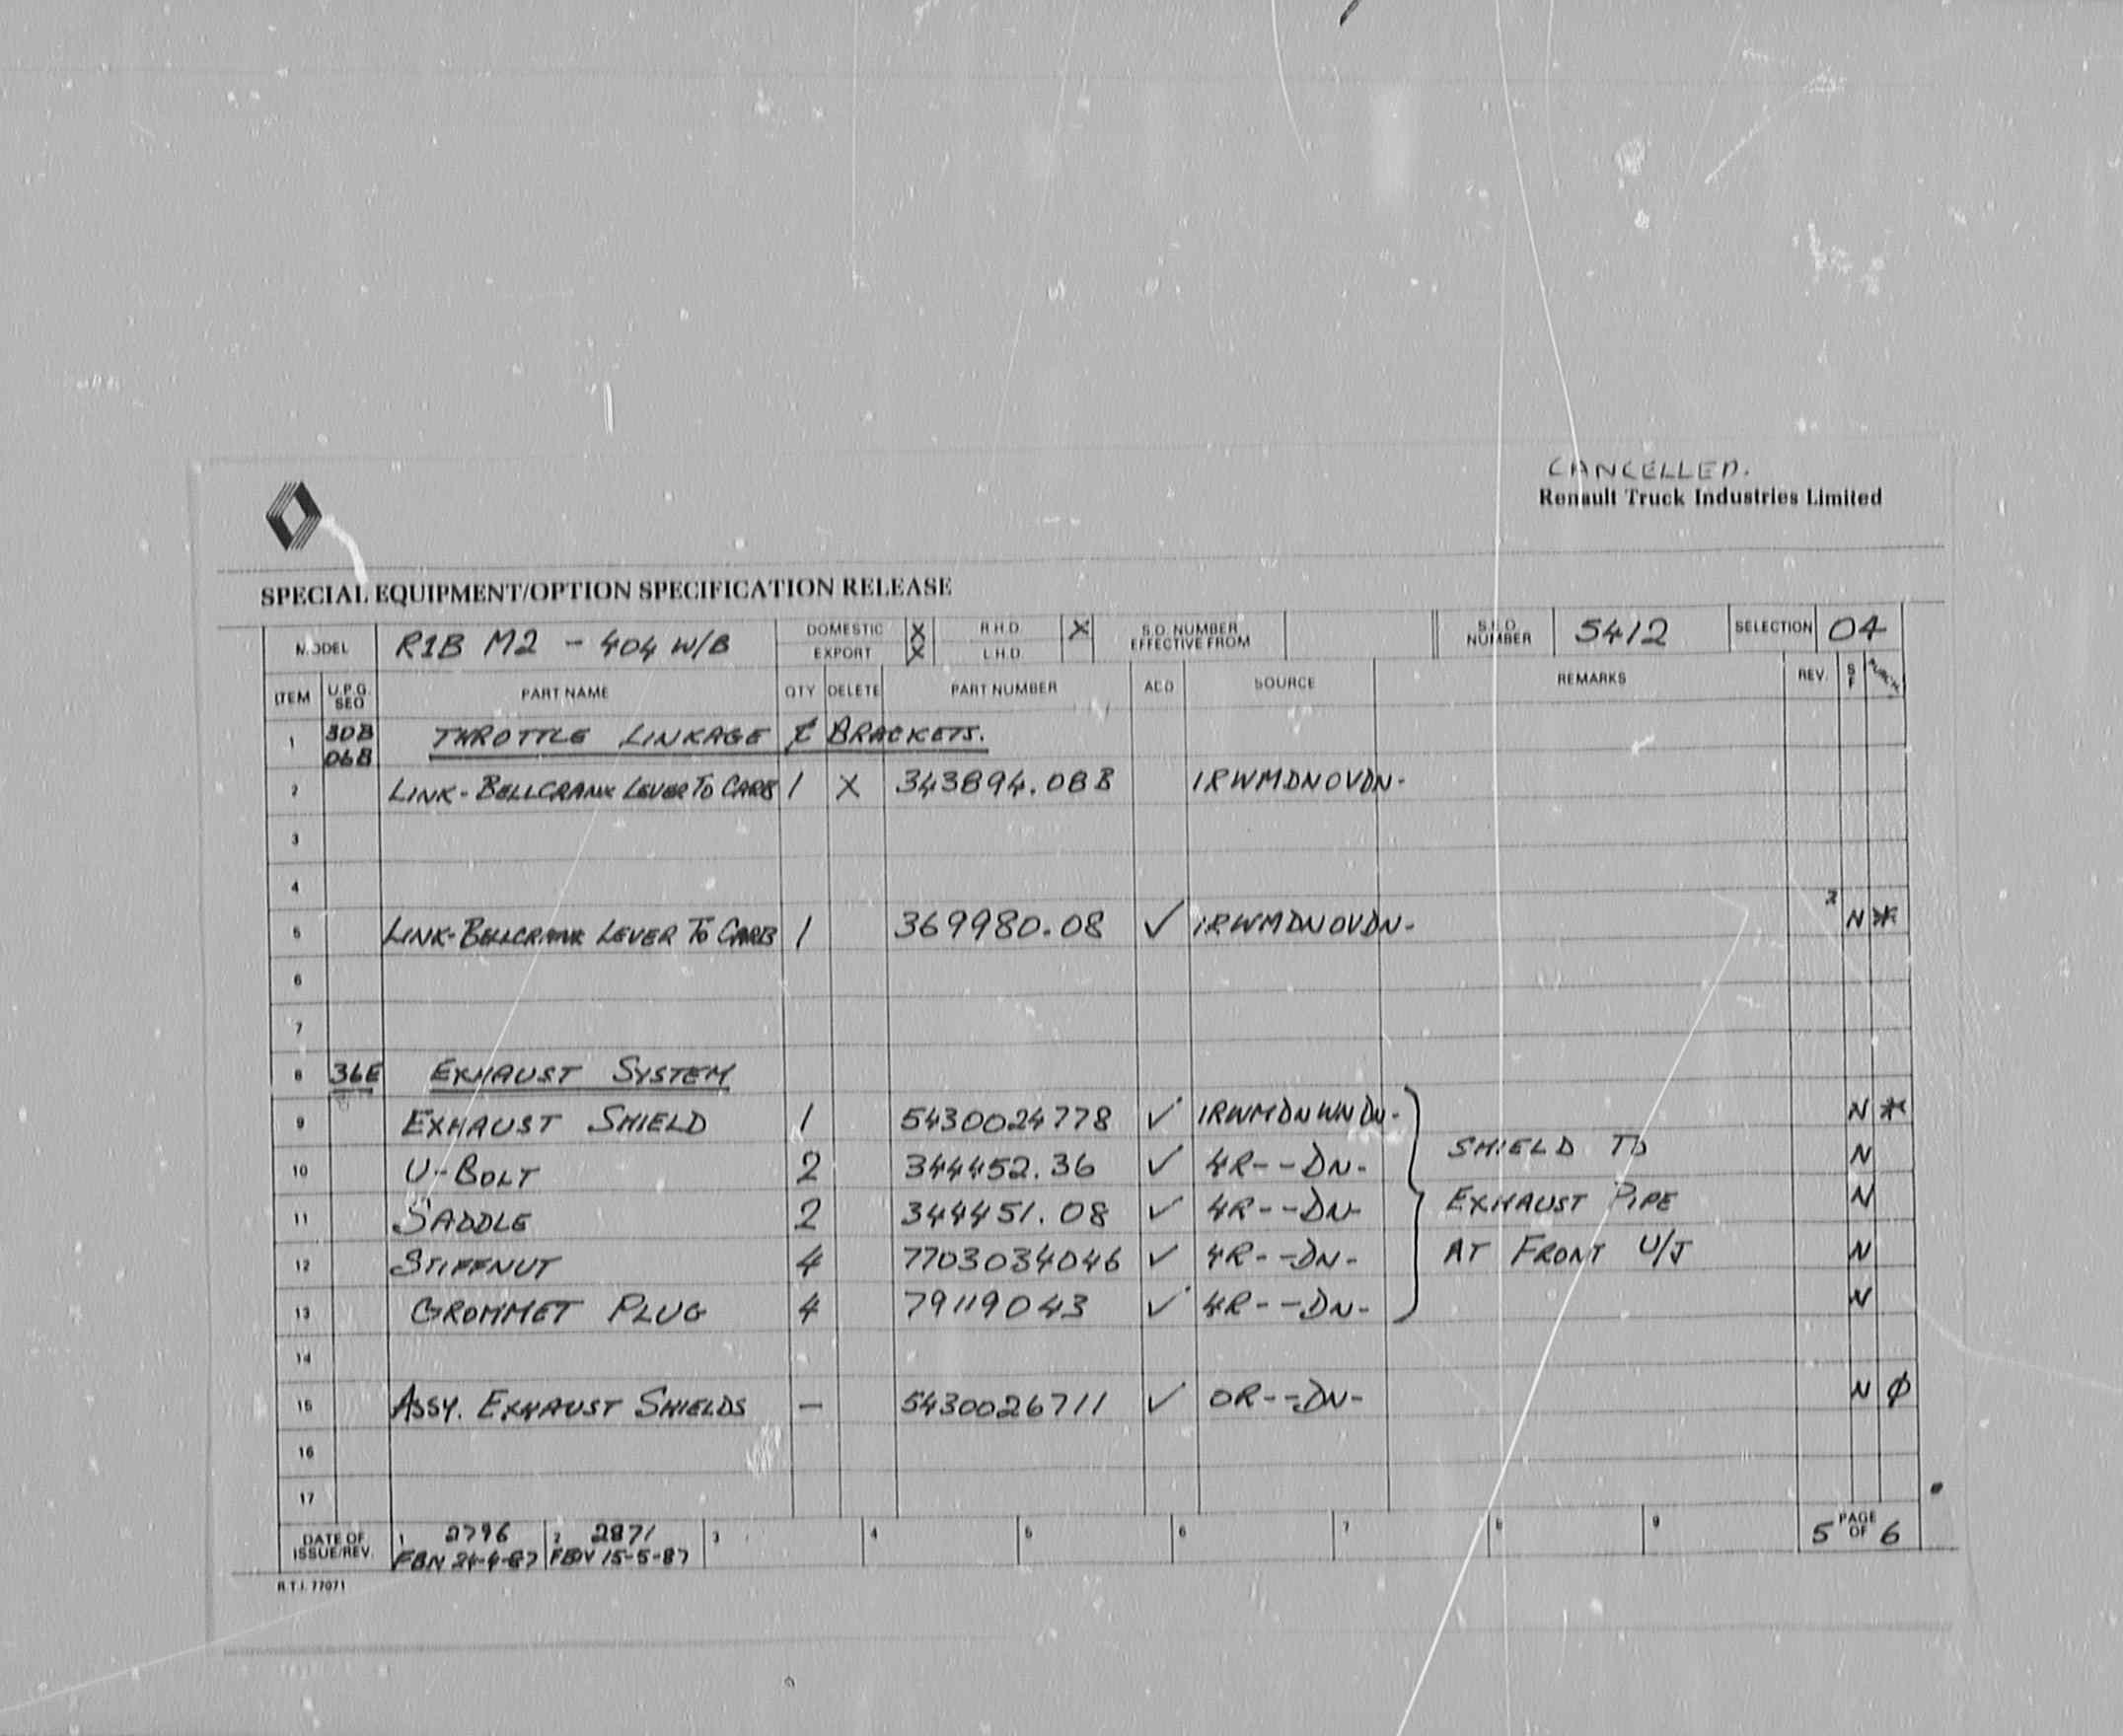 CANCELLED.
Renault Truck Industries Limited
SPECIAL EQUIPMENT/OPTION SPECIFICATION RELEASE
MODEL R1B M2 - 404 W/B DOMESTIC X R.H.D. X S.O. NUMBER EFFECTIVE FROM S.E.O. NUMBER 5412 SELECTION 04
EXPORT X L.H.D.
ITEM U.P.G. SEQ PART NAME QTY DELETE PART NUMBER ADD SOURCE REMARKS REV. S F
1 30B 06B THROTTLE LINKAGE & BRACKETS.
2 LINK-BELLCRANK LEVER TO CARB 1 X 343894.08B 1RWMDNOVDN-
3
4
5 LINK-BELLCRANK LEVER TO CARB 1 369980.08 ✓ 1RWMDNOVDN- 2 N *
6
7
8 36E EXHAUST SYSTEM
9 EXHAUST SHIELD 1 5430024778 ✓ 1RWMDNWNDN- N *
10 U-BOLT 2 344452.36 ✓ 4R--DN- SHIELD TO N
11 SADDLE 2 344451.08 ✓ 4R--DN- EXHAUST PIPE N
12 STIFFNUT 4 7703034046 ✓ 4R--DN- AT FRONT U/J N
13 GROMMET PLUG 4 79119043 ✓ 4R--DN- N
14
15 ASSY. EXHAUST SHIELDS - 5430026711 ✓ OR--DN- N Ø
16
17
DATE OF ISSUE/REV. 1 2796 2 2871 3 4 5 6 7 8 9 5 PAGE OF 6
FBN 24-4-87 FBN 15-5-87
R.T.I. 77071